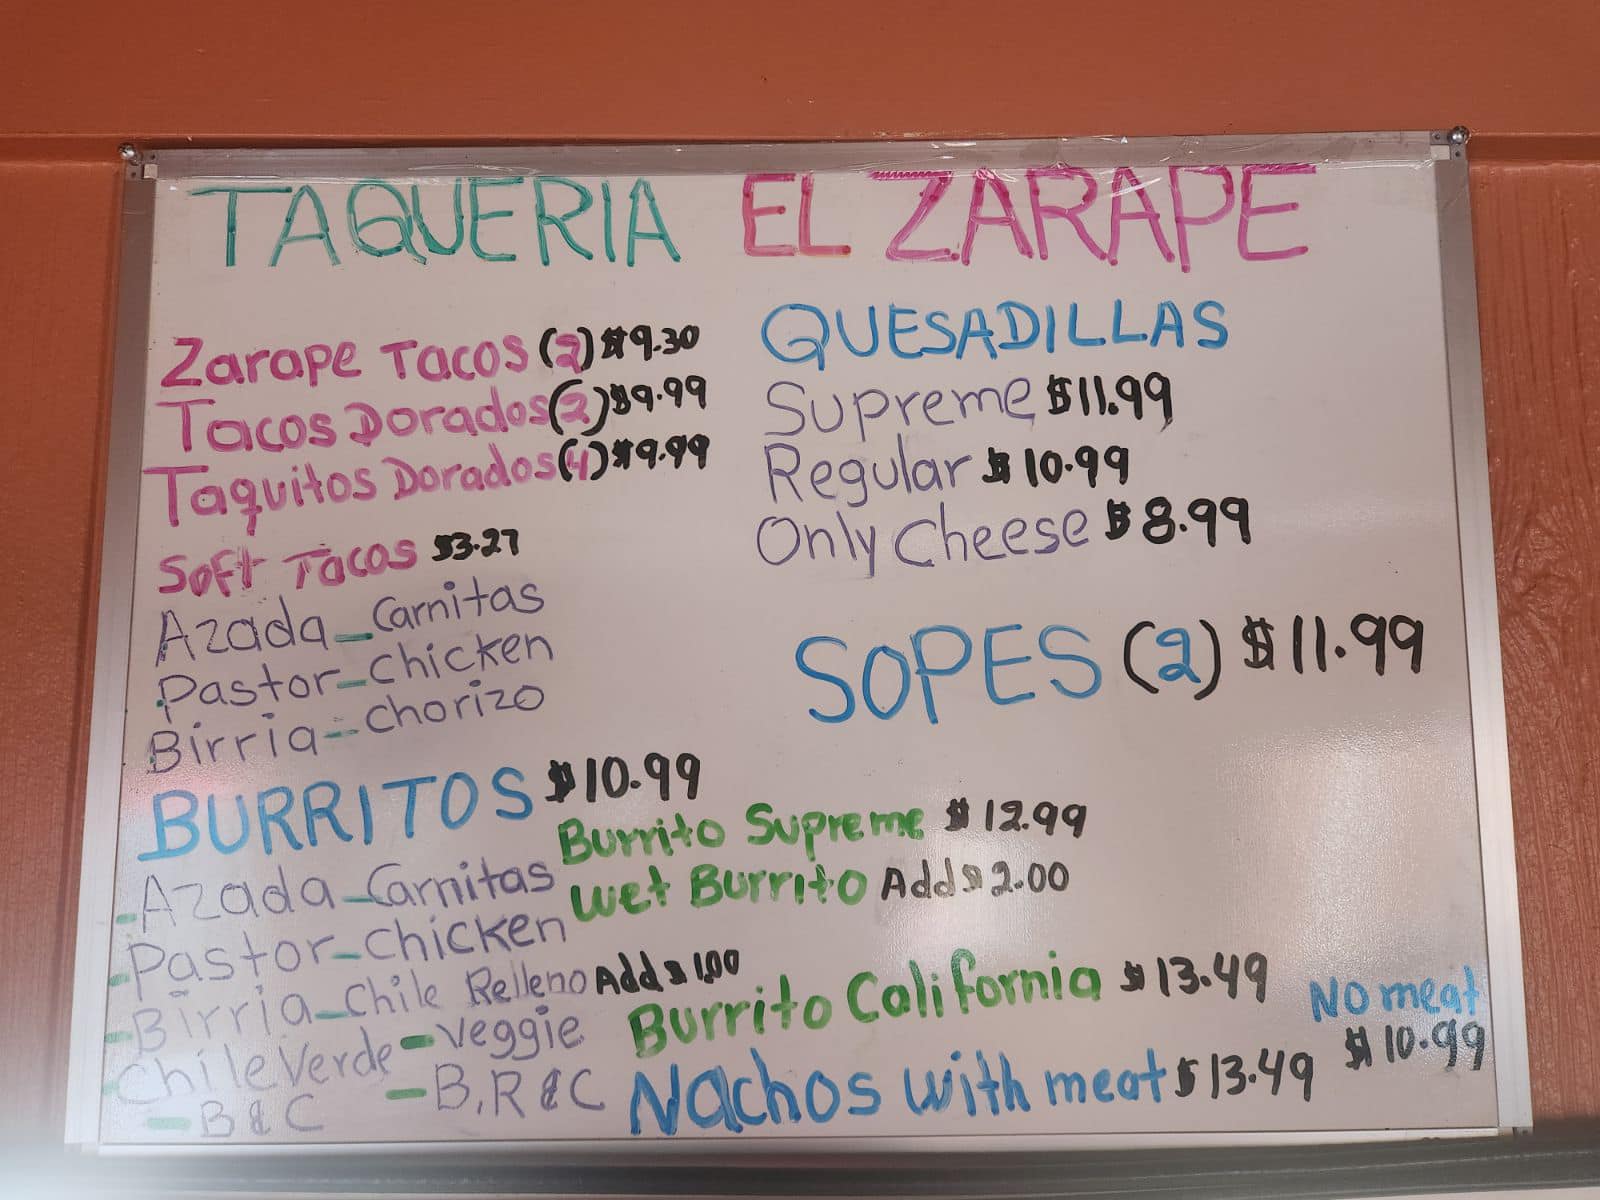 TAQUERIA EL ZARAPE
Zarape Tacos (2) $9.30
Tacos Dorados (2) $9.99
Taquitos Dorados (4) $9.99
Soft Tacos $3.27
Azada - Carnitas
Pastor - Chicken
Birria - Chorizo
BURRITOS $10.99
- Azada - Carnitas
- Pastor - Chicken
- Birria - Chile Relleno Add $1.00
- Chile Verde - Veggie
- B & C - B, R & C
QUESADILLAS
Supreme $11.99
Regular $10.99
Only Cheese $8.99
SOPES (2) $11.99
Burrito Supreme $12.99
Wet Burrito Add $2.00
Burrito California $13.49
Nachos with meat $13.49
No meat
$10.99